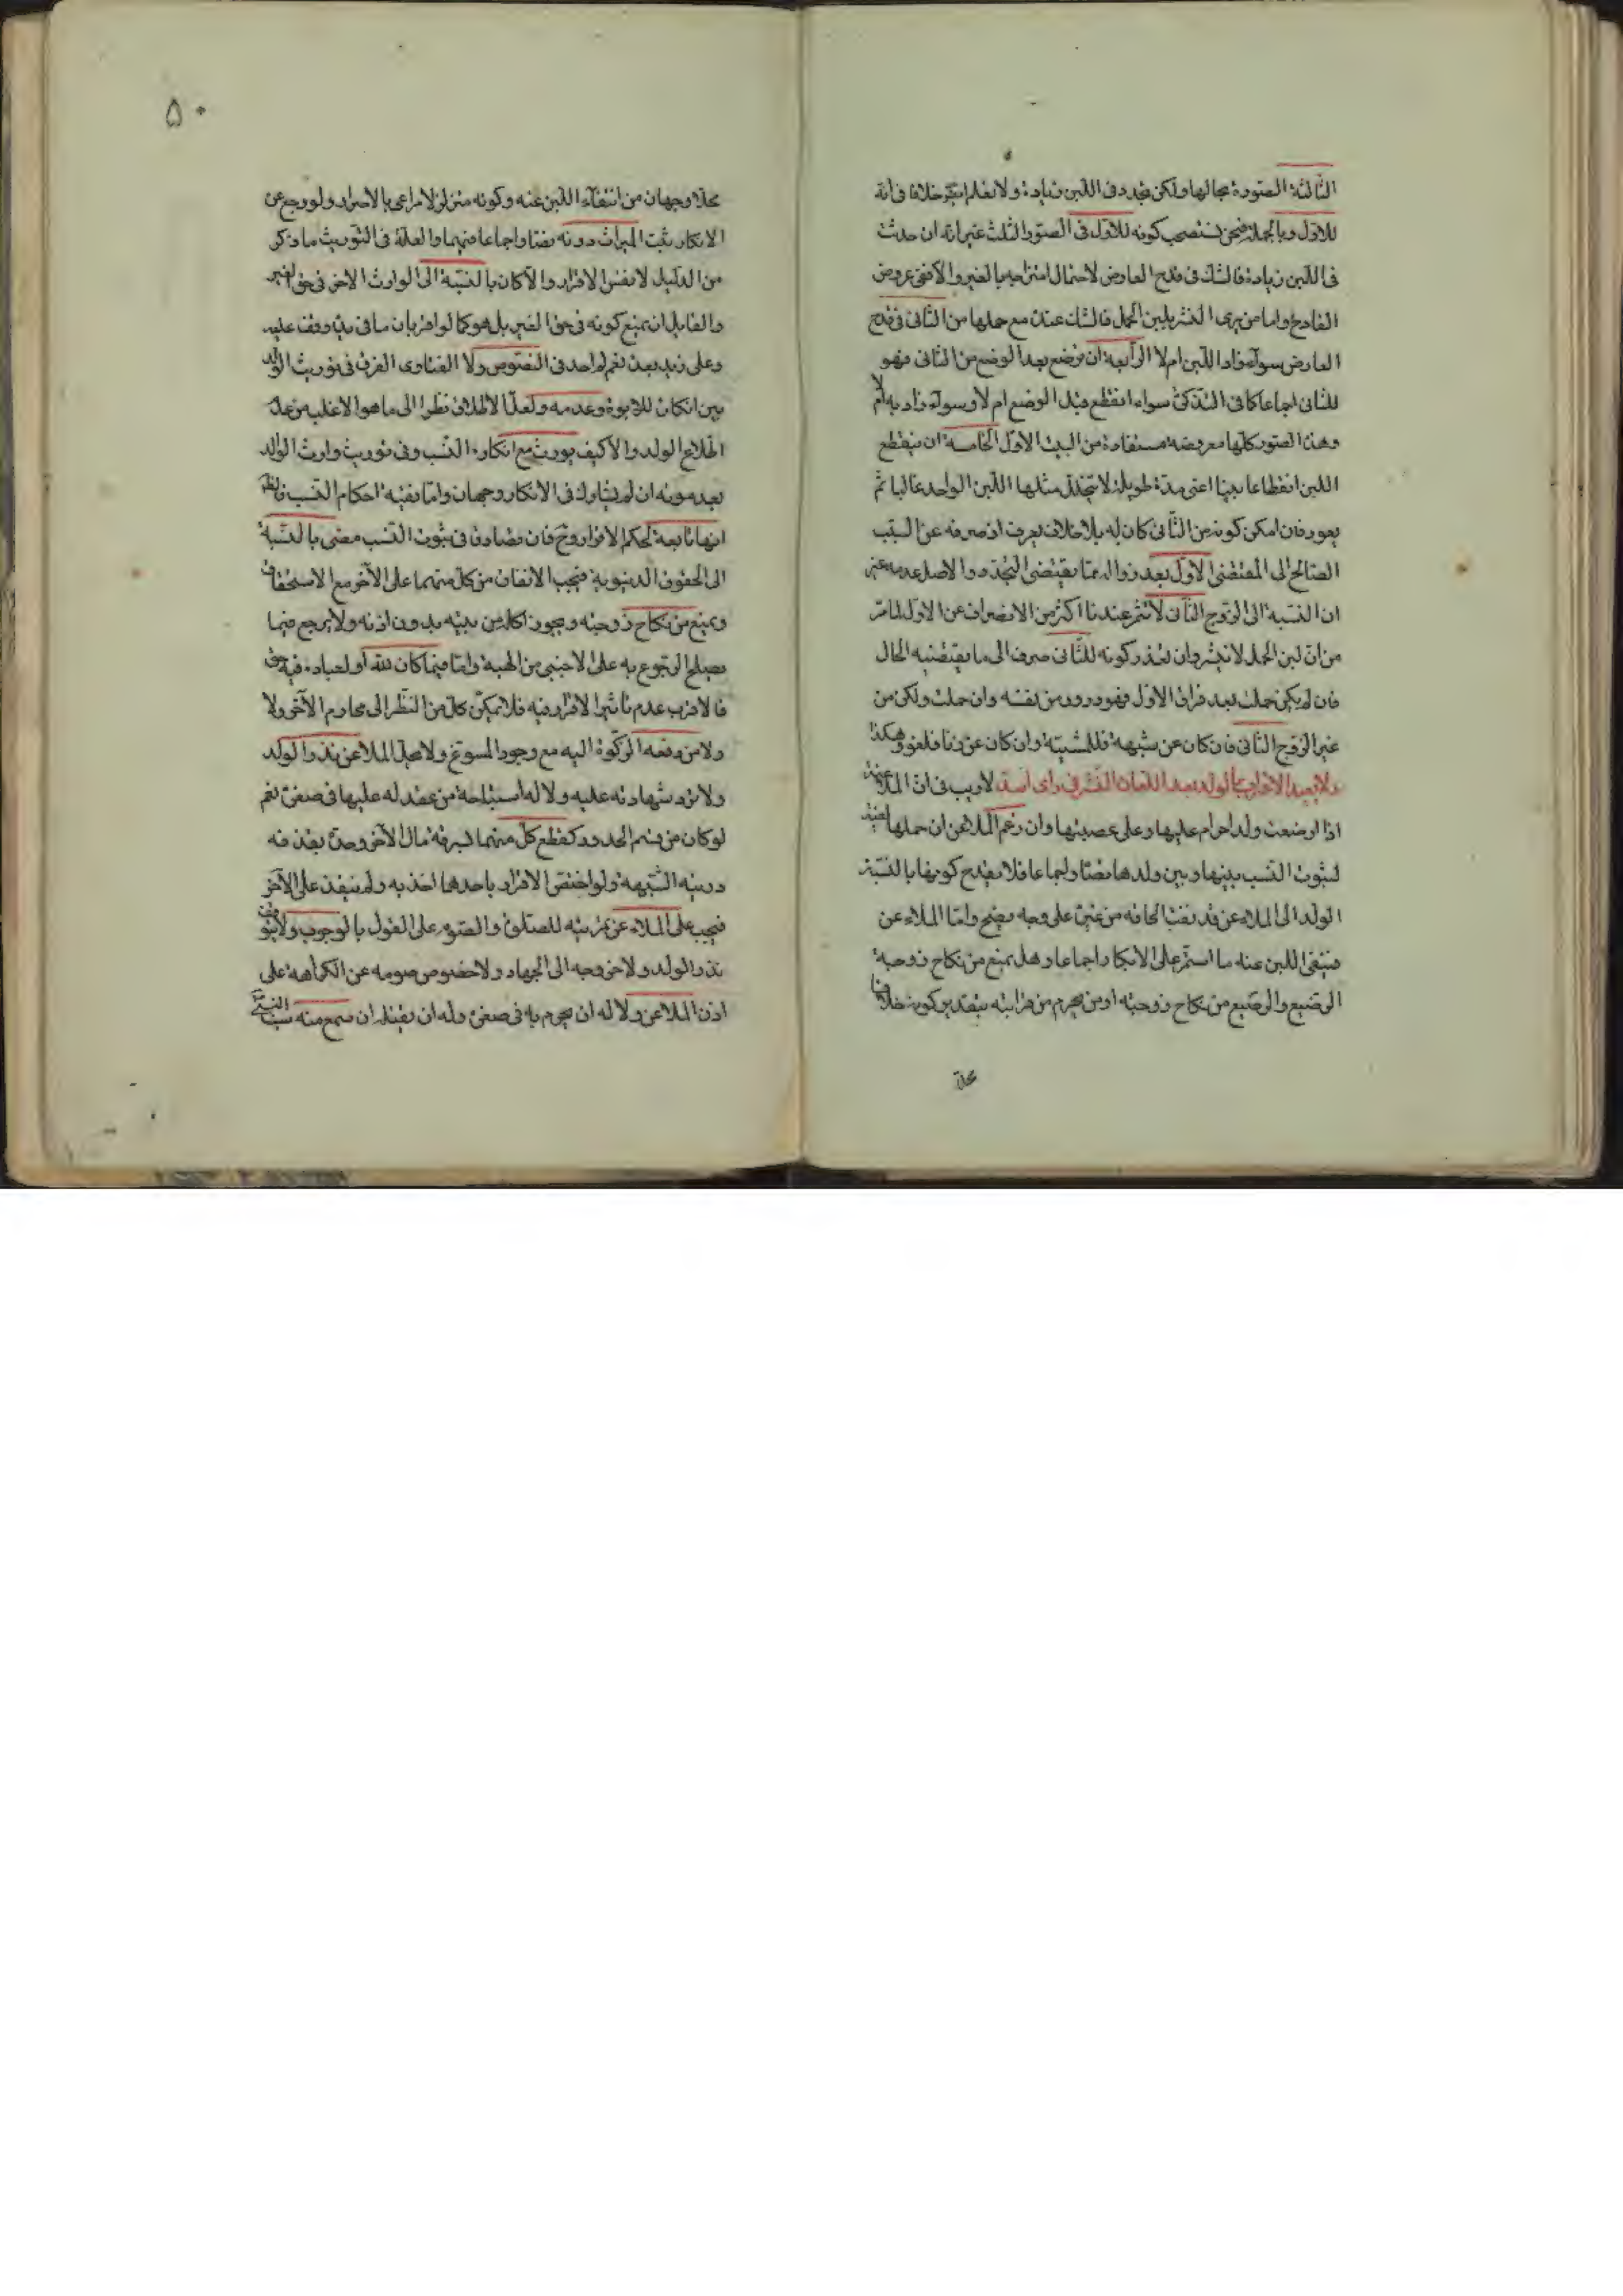 الثالثة الصورة بحالها ولكن تجدد في اللبن زيادة ولا نعلم خلافا في انه
للاول وبالجملة فنحن نستصحب كونه للاول في الصور الثلث غير انه ان حدث
في اللبن زيادة فالشك في قدح العارض لاحتمال امتزاجه بالغير والا ففي عروض
القادح واما من يرى النشر بلبن الحمل فالشك عنده مع حملها من الثاني في قدح
العارض سواء زاد اللبن ام لا الرابعة ان ترضع بعد الوضع من الثاني فهو
للثاني اجماعا كما في التذكرة سواء انقطع قبل الوضع ام لا وسواء زاد به ام لا
وهذه الصور كلها مفروضة مستفادة من البيت الاول الخامسة ان ينقطع
اللبن انقطاعا بينا اعني مدة طويلة لا يتخلل مثلها اللبن الواحد غالبا ثم
يعود فان امكن كونه من الثاني كان له بلا خلاف يعرف اذ صرفه عن السبب
الصالح الى المقتضي الاول بعد زواله مما يقتضي التجدد والاصل عدمه غير
ان النسبة الى الزوج الثاني لا تثمر عندنا اكثر من الانصراف عن الاول لما مر
من ان لبن الحمل لا ينشر وان تعذر كونه للثاني صرف الى ما يقتضيه الحال
فان لم يكن حملت بعد فراق الاول فهو درور من نفسه وان حملت ولكن من
غير الزوج الثاني فان كان عن شبهة فللشبهة وان كان عن زنا فلغو وهكذا
ولا يعيد الاقرار بالولد بعد اللعان النشر في راي اسد لا ريب في ان الملاعنة
اذا ارضعت ولدا حرم عليها وعلى عصبتها وان زعم الملاعن ان حملها
لثبوت النسب بينها وبين ولدها نصا واجماعا فلا يقدح كونها بالنسبة
الولد الى الملاعن قد نفت الحاقه من غيره على وجه يصح واما الملاعن
فينتفي اللبن عنه ما استمر على الانكار اجماعا وهل يمنع من نكاح زوجة
الرضيع والرضيع من نكاح زوجته او من يحرم من قرابته بتقدير كونه خلافا
محلا
٥٠
محلا وجهان من انتفاء اللبن عنه وكونه منزلا مراعى بالاصرار ولو رجع عن
الانكار ثبت الميراث دونه نصا واجماعا فيهما والعلة في التوريث ما ذكر
من الدليل لا نفس الاقرار والا كان بالنسبة الى الوارث الاخر في حق الغير
والقايل ان يمنع كونه في حق الغير بل هو كما لو اقر بان ما في يده وقف عليه
وعلى زيد بعده نعم لم اجد في النصوص ولا الفتاوى الفرق في توريث الولد
بين انكاره للابوة وعدمه ولعل الاطلاق نظرا الى ما هو الاغلب من عدم
اطلاع الولد والا كيف يورث مع انكاره النسب وفي توريث وارث الولد
بعد موته ان لم يشارك في الانكار وجهان واما بقية احكام النسب فالظ
انها تابعة لحكم الاقرار وح فان تصادقا في ثبوت النسب مضى بالنسبة
الى الحقوق الدنيوية فيجب الانفاق من كل منهما على الآخر مع الاستحقاق
ويمنع من نكاح زوجته ويجوز اكله من بيته بدون اذنه ولا يرجع فيما
يصلح الرجوع به على الاجنبي من الهبة واما فيما كان لله او لعباده فيه حق
فالاقرب عدم تاثير الاقرار فيه فلا يمكن كل من النظر الى محارم الآخر ولا
ولا من دفعه الزكوة اليه مع وجود المسوغ ولا يحل الملاعن نذر الولد
ولا ترد شهادته عليه ولا له استباحة من عقد له عليها في صغره نعم
لو كان من قسم الحدود كقطع كل منهما لسرقة مال الآخر وحده بقذفه
درئته الشبهة ولو اختص الاقرار باحدهما اخذ به ولم ينفذ على الآخر
فيجب على الملاعن تمرينه للصلوة والصوم على القول بالوجوب ولا يتوقف
نذر الولد ولا خروجه الى الجهاد ولا خصوص صومه عن الكراهة على
اذن الملاعن ولا له ان يحرم به في صغره وله ان يقتله ان سمع منه سب النبي